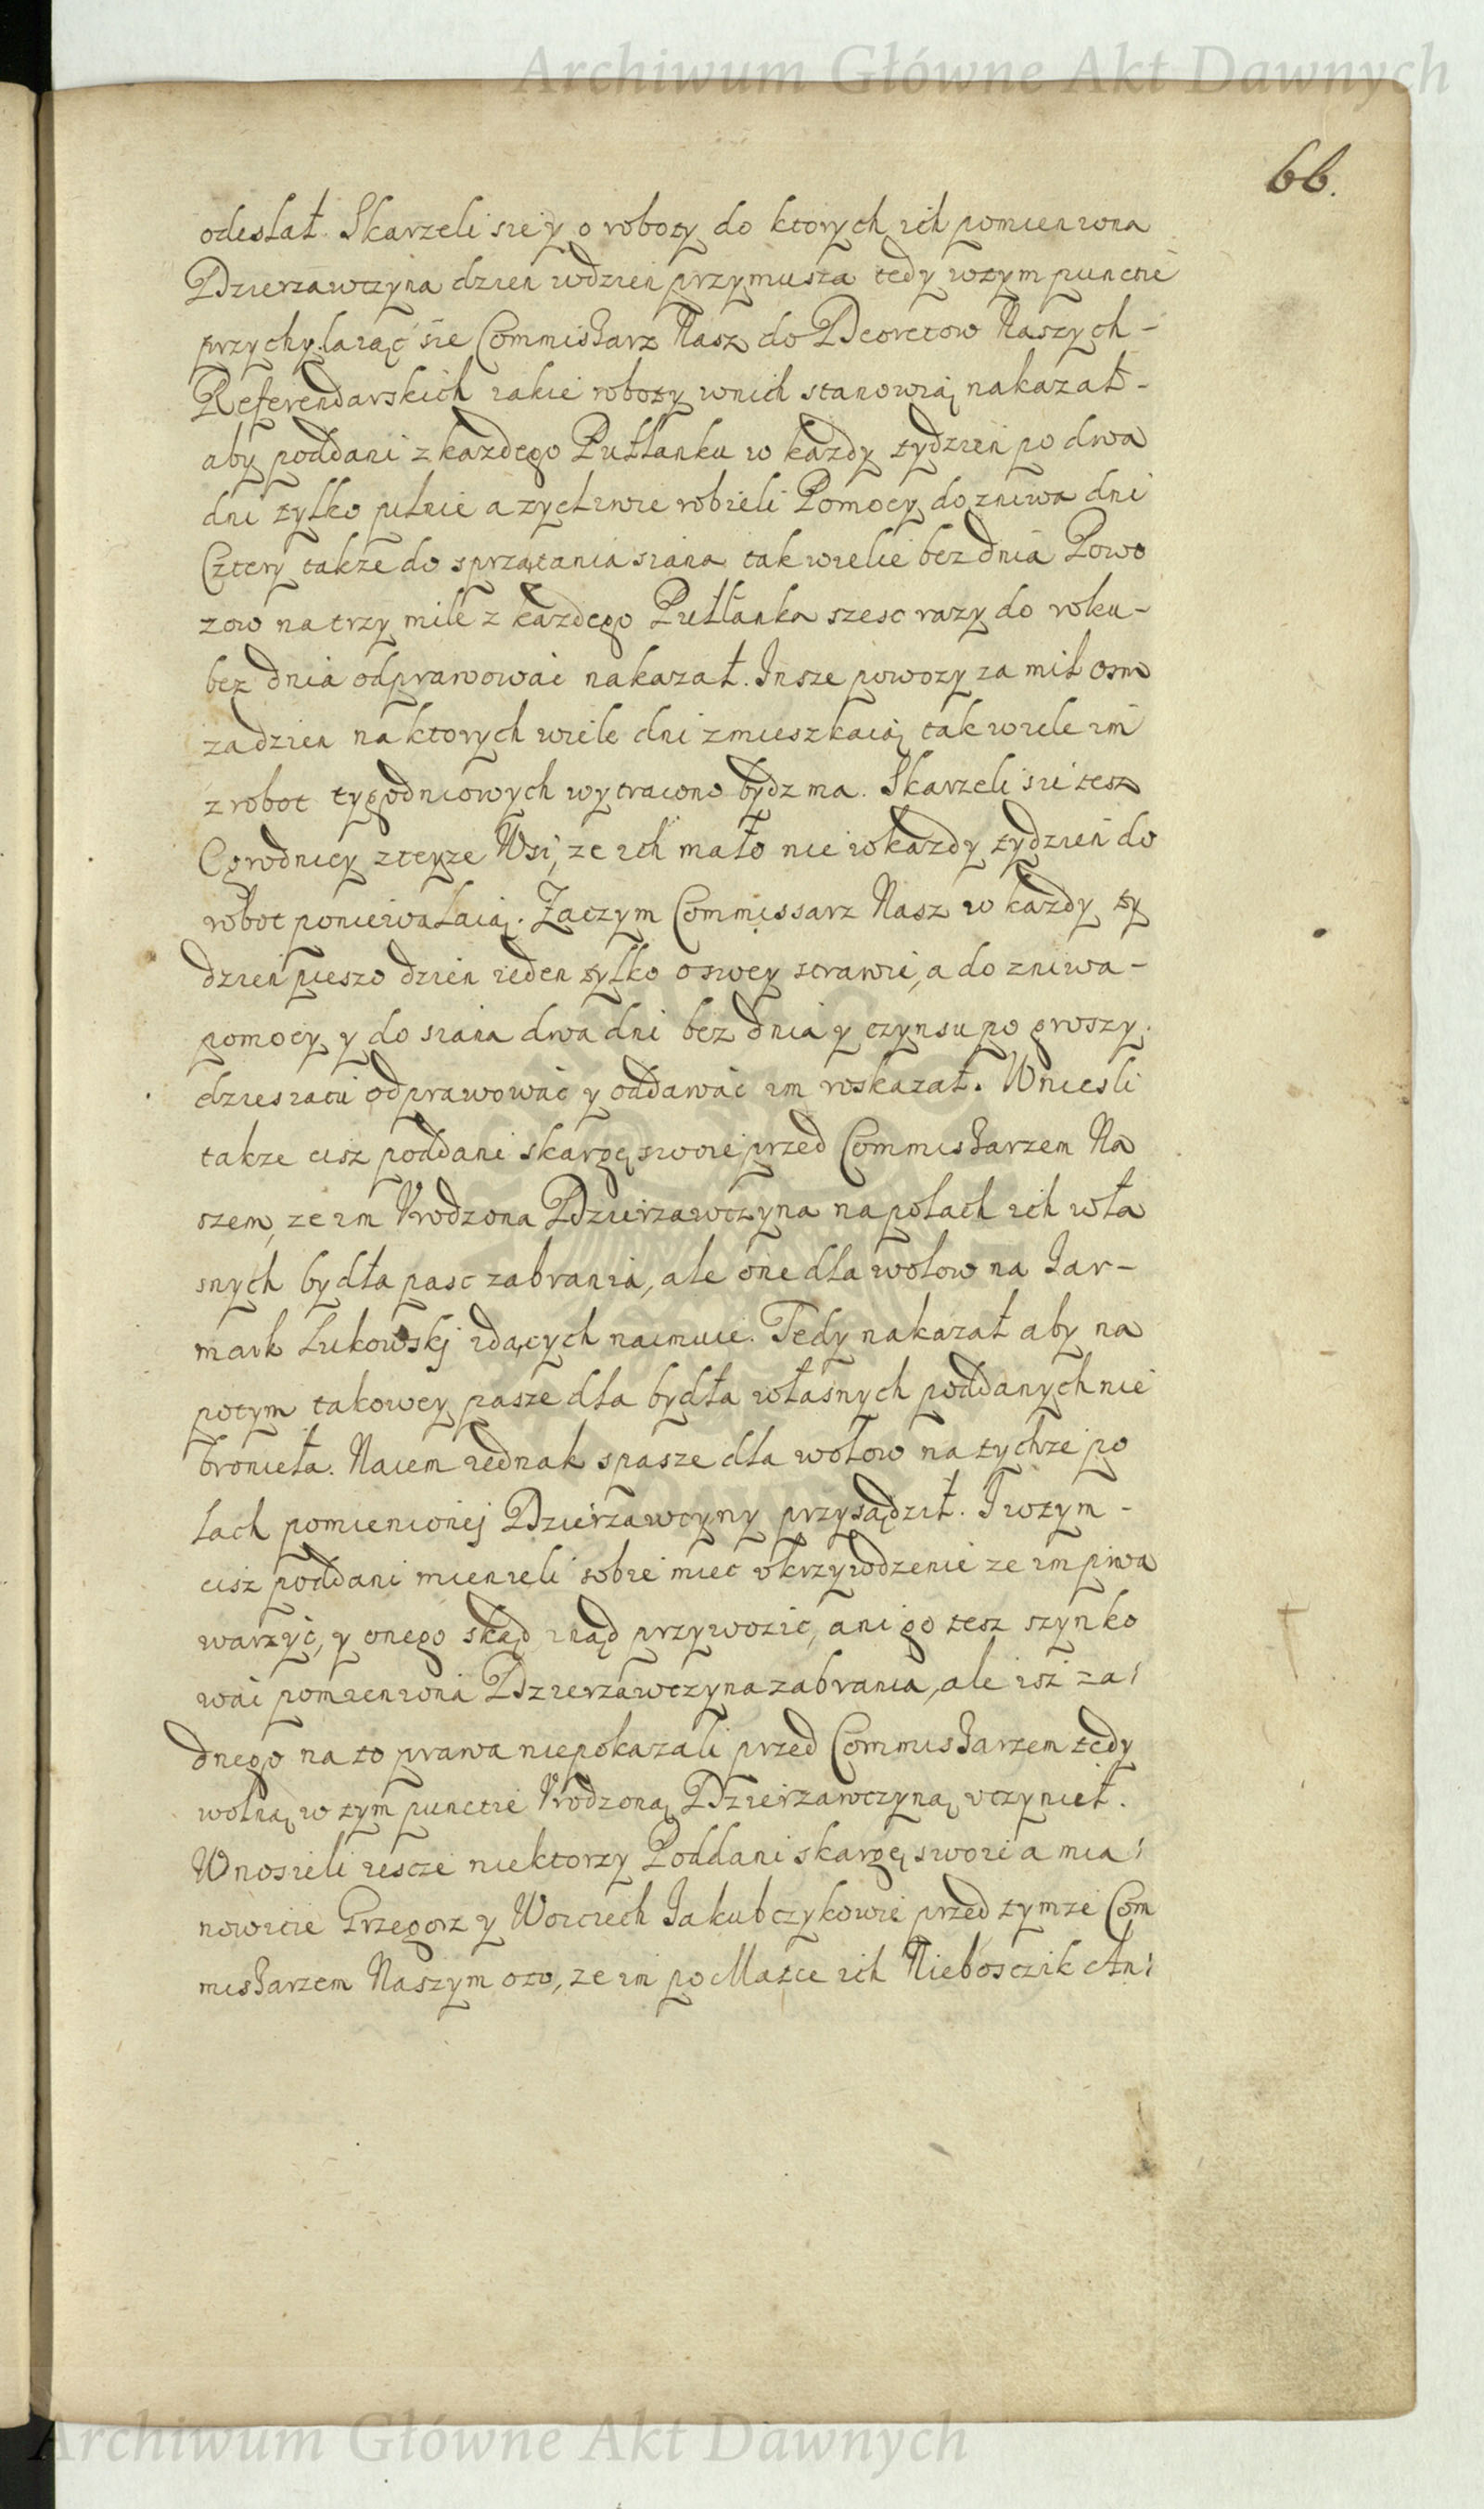 Archiwum Główne Akt Dawnych
66.
odesłał. Skarzeli sie y o roboty do ktorych ich pomieniona
Dzierzawczyna dzien wdzien przymusza tedy wtym puncie
przychylaiąć sie Commissarz Nasz do Decretow Naszych -
Referendarskich iakie roboty wnich stanowią nakazał -
aby poddani z kazdego Pułłanku w kazdy tydzien po dwa
dni tylko pilnie a zyczliwie robieli Pomocy do zniwa dni
Cztery takze do sprzątania siana tak wielie bez dnia Powo
zow na trzy mile z kazdego Pułłanka szesc razy do roku -
bez dnia odprawowaċ nakazał. Insze powozy za mil osm
zadzien na ktorych wiele dni zmieszkaią tak wiele im
z robot tygodniowych wytracono bydz ma. Skarzeli sie tesz
Ogrodnicy zteyze Wsi, ze ich mało nie wkazdy tydzien do
robot poniewalaią. Zaczym Commissarz Nasz w kazdy ty
dzien pieszo dzien ieden tylko o swey strawie, a do zniwa -
pomocy y do siana dwa dni bez dnia y czynsu po groszy
dziesiaci odprawowac y oddawac im wskazał. Wniesli
takze cisz poddani skargę swoie przed Commissarzem Na
szem, ze im Vrodzona Dzierzawczyna na polach ich wła
snych bydła pasc zabrania, ale one dla wolow na Iar -
mark Łukowskj idących naimuie. Tedy nakazał aby na
potym takowey pasze dla bydła własnych poddanych nie
broniela. Naiem iednak spasze dla wołow na tychze po
lach pomienionej Dzierzawczyny przysądził. I wtym -
cisz poddani mienieli sobie miec vkrzywdzenie ze im piwa
warzyc, y onego skąd inąd przywozic, ani go tesz szynko
wac pomieniona Dzierzawczyna zabrania, ale isz za
dnego na to prawa niepokazali przed Commissarzem tedy
wolną w tym puncie Vrodzoną Dzierzawczyną vczynieł.
Wnosieli iescze niektorzy Poddani skargę swoie a mia
nowicie Grzegorz y Woiciech Iakubczykowie przed tymze Com
missarzem Naszym oto, ze im po Matce ich Nieboszczik An
Archiwum Główne Akt Dawnych